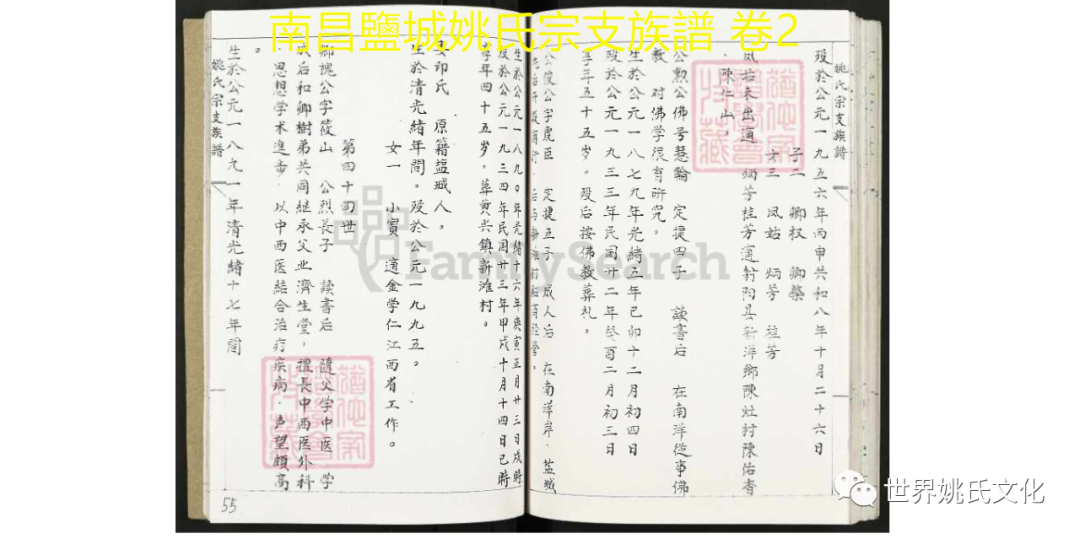 南昌鹽城姚氏宗支族譜 卷2
姚氏宗支族譜
歿於公元一九五六年丙申共和八年十月二十六日
子二 卿权 卿榮
女三 凤姑 炳芳 桂芳
凤姑未出適 炳芳桂芳適射阳县新洋鄉陳灶村陳佑香
陳仁山。
公勲公佛号慧輪 定援四子 讀書后 在南洋從事佛
教 对佛学很有研究。
生於公元一八七九年光緒五年己卯十二月初四日
歿於公元一九三三年民國廿二年癸酉二月初三日
享年五十五岁。歿后按佛教葬礼。
公俊公字虎臣 定援五子 成人后 在南洋岸·盐城
生於公元一八九〇年光緒十六年庚寅正月廿三日戌時
歿於公元一九三四年民國廿三年甲戌十月十四日巳時
享年四十五岁。葬黄兴镇新滩村。
女印氏 原籍盐城人。
生於清光緒年間。歿於公元一九九五。
女一 小寶 適金学仁江西省工作。
第四十四世
卿槐公字筱山 公烈長子 读書后 隨父学中医 学
成后和卿樹弟共同继承父业濟生堂，擅長中西医外科
思想学术進步·以中西医結合治疗疾病·声望頗高
。
生於公元一八九一年清光緒十七年間
姚氏宗支族譜
55
FamilySearch
世界姚氏文化